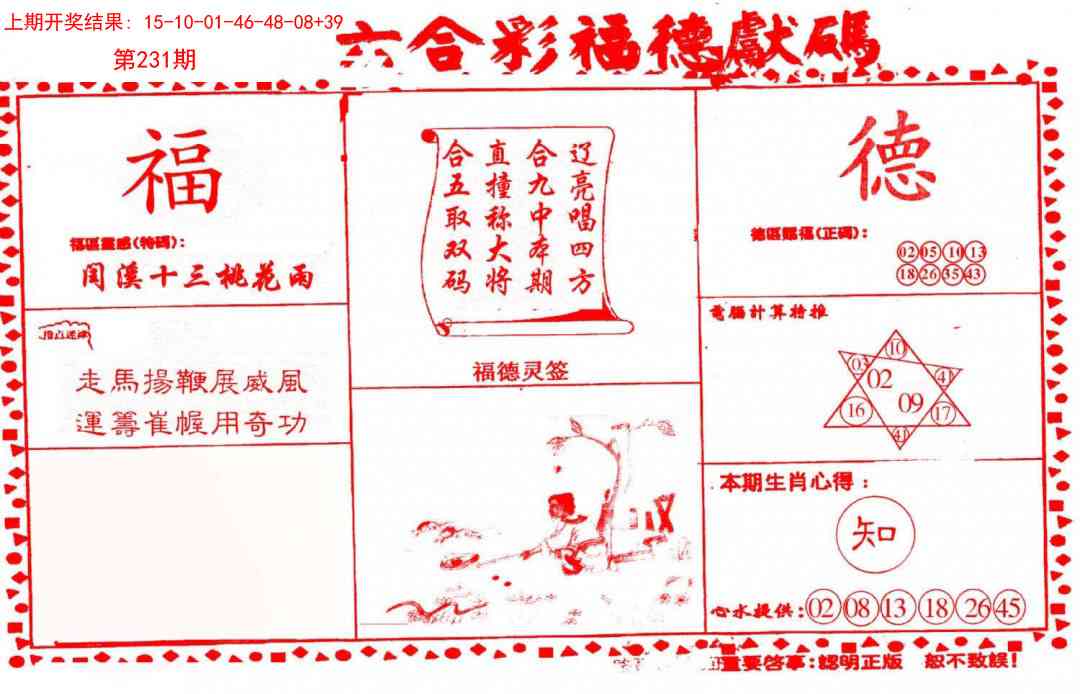 上期开奖结果: 15-10-01-46-48-08+39
第231期
六合彩福德獻碼
福
福區靈感(特碼):
閏溪十三桃花雨
走馬揚鞭展威風
運籌崔幄用奇功
辽亮唱四方
合九中本期
直撞称大将
合五取双码
福德灵签
德
德區賜福(正碼):
02 05 10 13
18 26 35 43
電腦計算特推
10
03 02 41
16 09 17
41
本期生肖心得:
知
心水提供: 02 08 13 18 26 45
重要啓事:認明正版 恕不致誤!